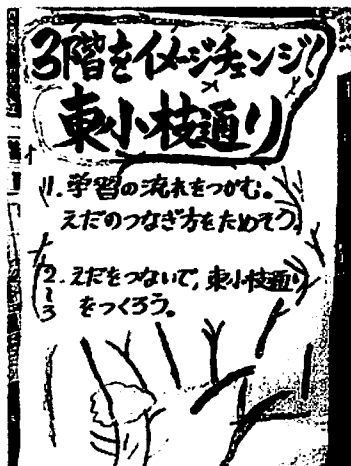 3階をイメージチェンジ!
東小枝通り
1. 学習の流れをつかむ。
えだのつなぎ方をためそう。
2~3. えだをつないで、東小枝通り
をつくろう。